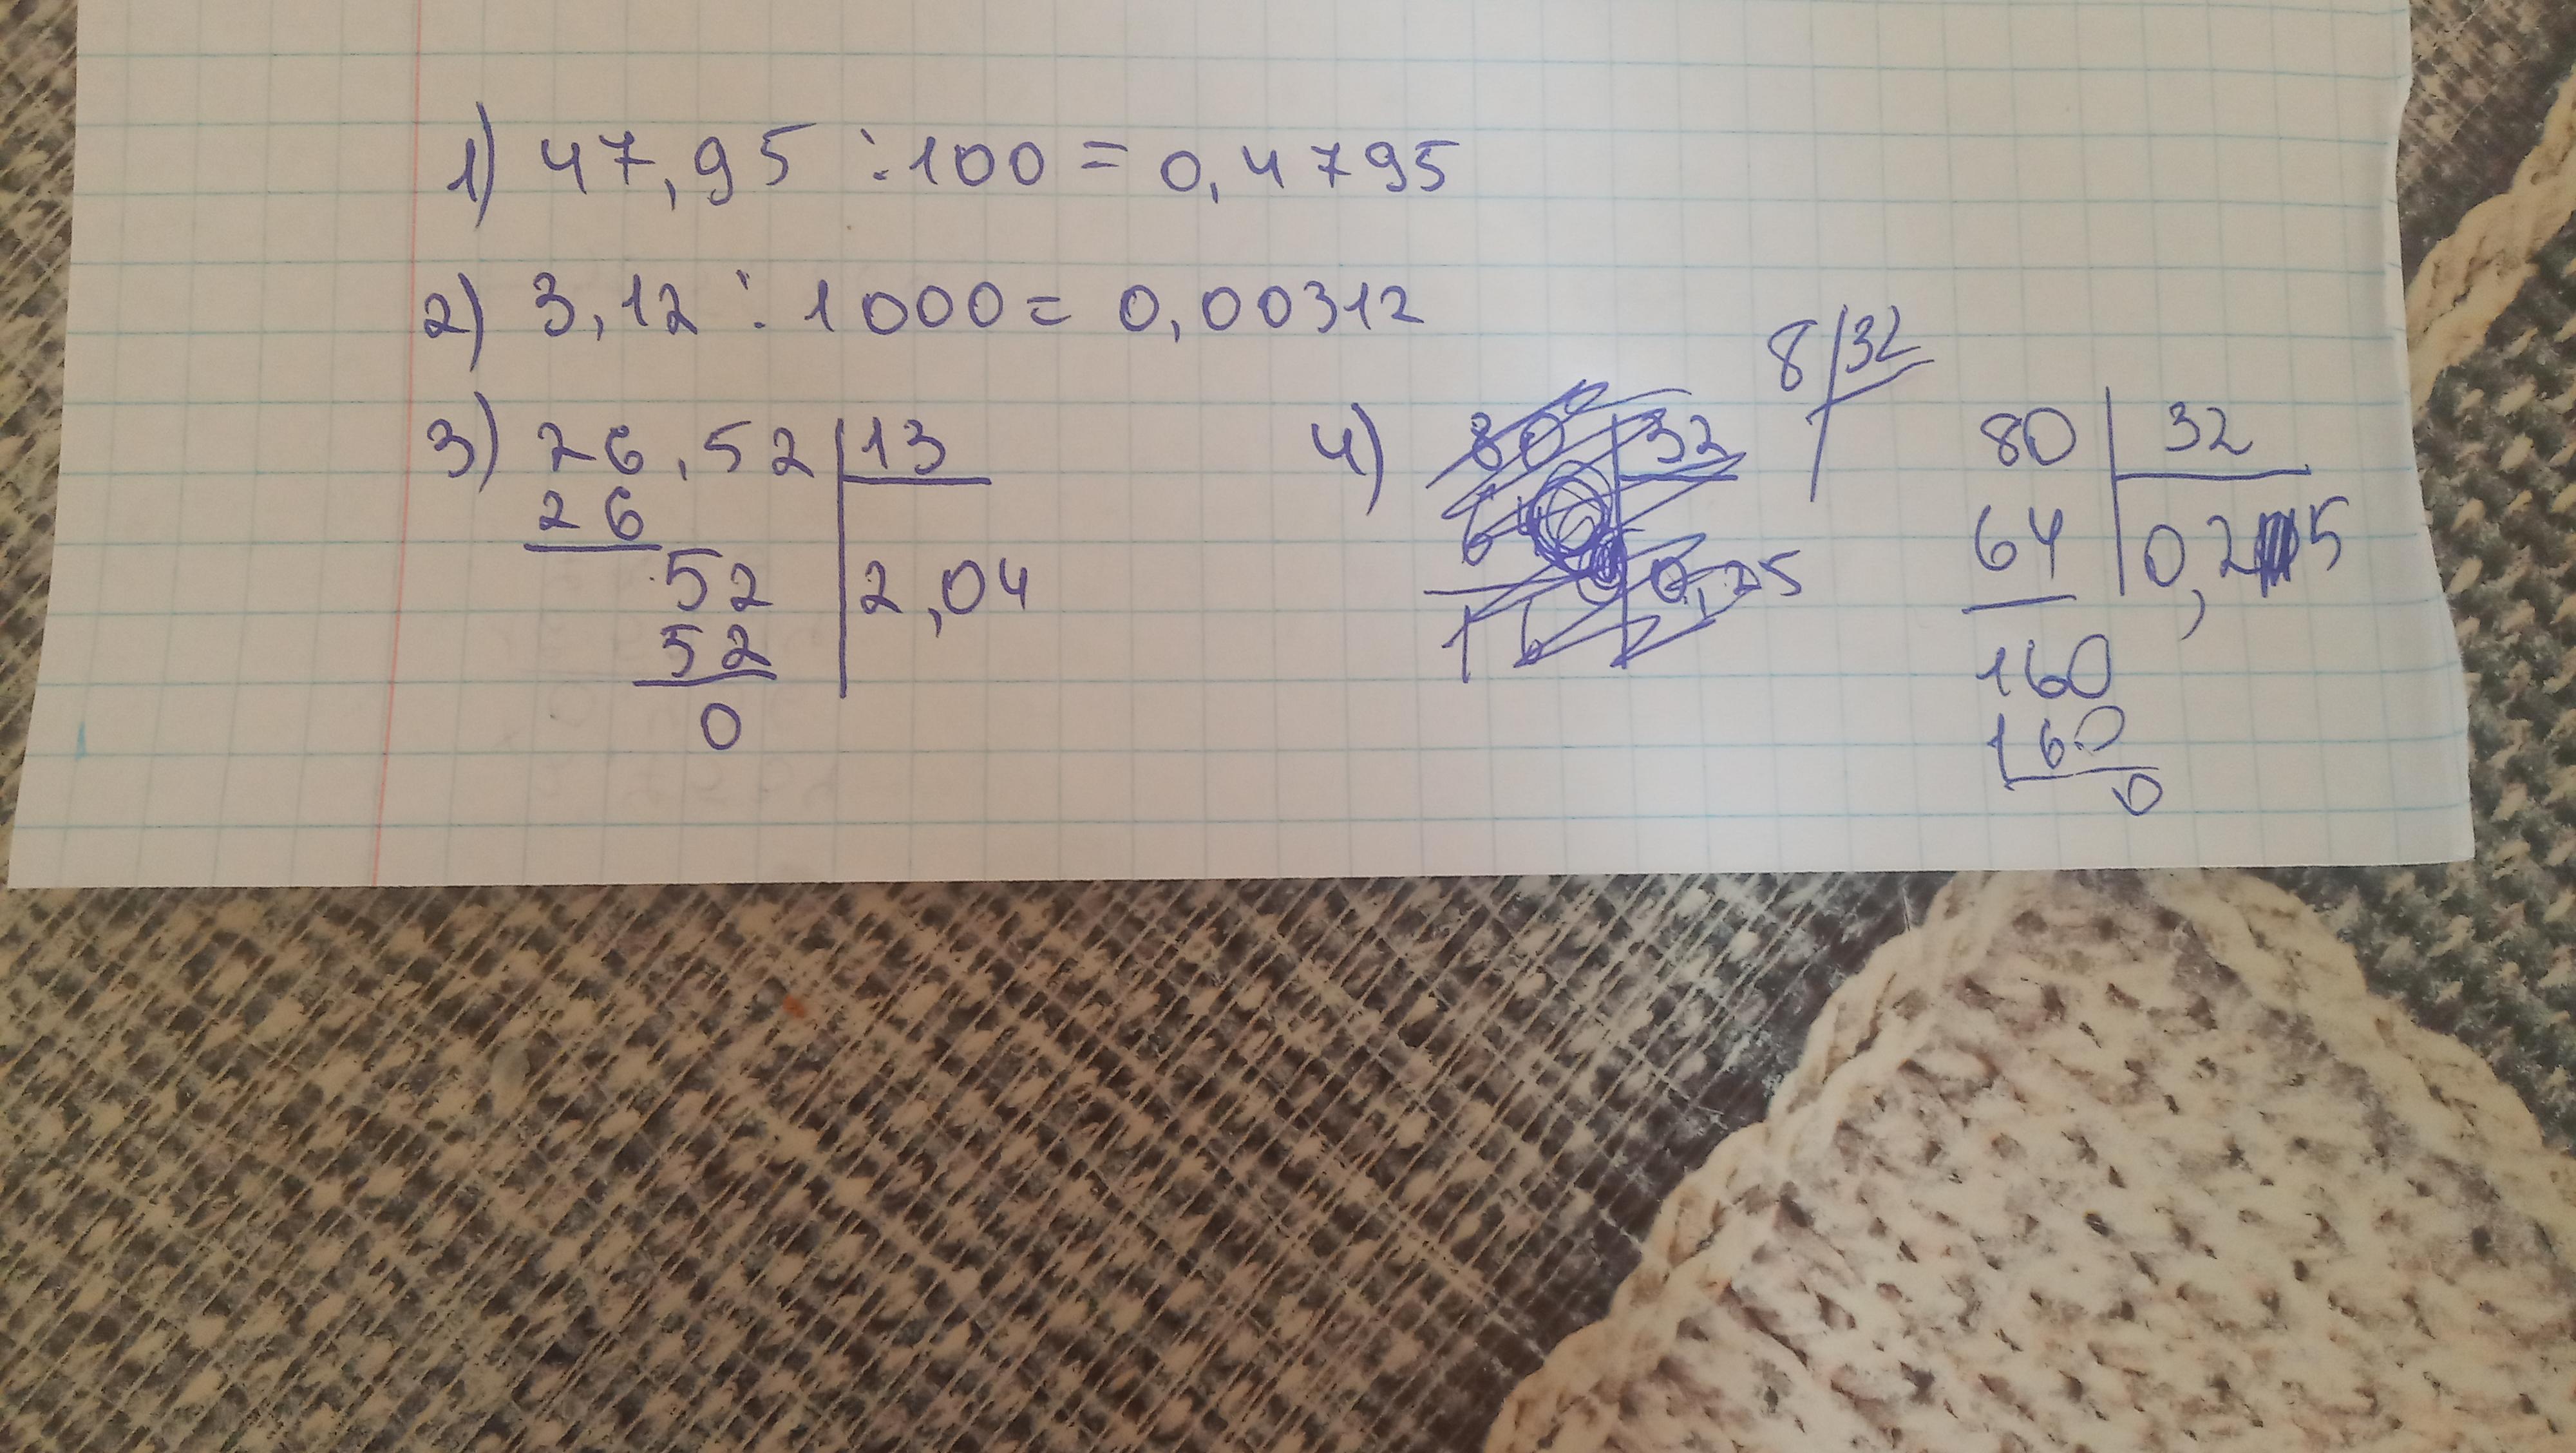 1) 47,95 : 100 = 0,4795
2) 3,12 : 1000 = 0,00312
8 32
3) 26,52 13 4) 80 32 80 32
26 64 0,25
52 2,04 0,25
52 16 160
0 160
0